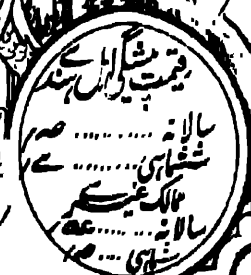 قیمت پیشگی اہل ہند سے
سالانہ ..........
ششماہی ..........
ممالک غیر سے
سالانہ ......
ششماہی ....